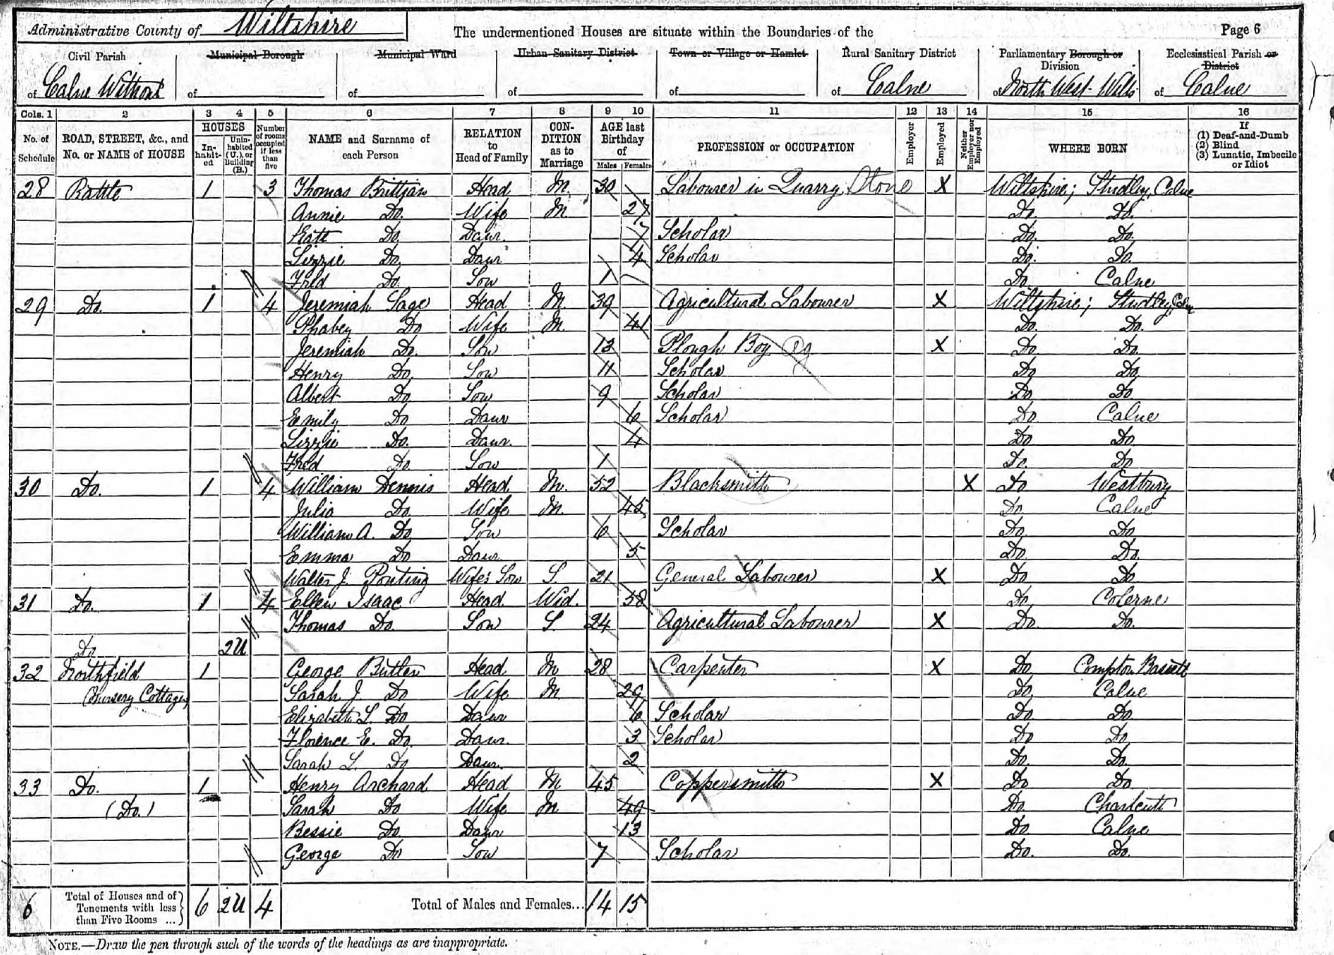 Administrative County of Wiltshire The undermentioned Houses are situate within the Boundaries of the Page 6
Civil Parish Municipal Borough Municipal Ward Urban Sanitary District Town or Village or Hamlet Rural Sanitary District Parliamentary Borough or Division Ecclesiastical Parish or District
of Calne Without of of of of of Calne of North West Wilts of Calne
Cols. 1 2 3 4 5 6 7 8 9 10 11 12 13 14 15 16
No. of Schedule ROAD, STREET, &c., and No. or NAME of HOUSE HOUSES Inhabited Uninhabited (U.), or Building (B.) Number of rooms occupied if less than five NAME and Surname of each Person RELATION to Head of Family CONDITION as to Marriage AGE last Birthday of Males Females PROFESSION or OCCUPATION Employer Employed Neither Employer nor Employed WHERE BORN If (1) Deaf-and-Dumb (2) Blind (3) Lunatic, Imbecile or Idiot
28 1 3 Thomas Brittian Head M 30 Labourer in Quarry Stone X Wiltshire; Studley, Calne
Annie Do Wife M 27 Do Do
Kate Do Daur 7 Scholar Do Do
Lizzie Do Daur 4 Scholar Do Do
Fred Do Son 1 Do Calne
29 Do. 1 4 Jeremiah Sage Head M 39 Agricultural Labourer X Wiltshire; Studley, Calne
Phabey Do Wife M 41 Do Do
Jeremiah Do. Son 13 Plough Boy Ag X Do Do
Henry Do Son 11 Scholar Do Do
Albert Do Son 9 Scholar Do Do
Emily Do Daur 6 Scholar Do Calne
Lizzie Do. Daur 4 Do Do
Fred Do Son 1 Do. Do
30 Do. 1 4 William Dennis Head M. 52 Blacksmith X Do Westbury
Julia Do Wife M 45 Do Calne
William A. Do Son 6 Scholar Do Do
Emma Do Daur 5 Do Do.
Walter J. Ponting Wife's Son S. 21 General Labourer X Do Do
31 Do. 1 4 Ellen Isaac Head Wid. 58 Do Colerne
Thomas Do. Son S 24 Agricultural Labourer X Do. Do.
Do 2U
32 Northfield 1 George Butler Head M 28 Carpenter X Do Compton Bassett
(Nursery Cottages) Sarah J. Do Wife M 29 Do. Calne
Elizabeth L. Do Daur 6 Scholar Do Do
Florence E. Do Daur. 3 Scholar Do Do
Sarah L. Do Daur. 2 Do. Do.
33 Do. 1 Henry Archard Head M 45 Coppersmith X Do Do
(Do.) Sarah Do Wife M 49 Do. Charlcutt
Bessie Do Daur 13 Do. Calne
George Do Son 7 Scholar Do. Do.
6 Total of Houses and of Tenements with less than Five Rooms ... 6 2U 4 Total of Males and Females... 14 15
NOTE.—Draw the pen through such of the words of the headings as are inappropriate.